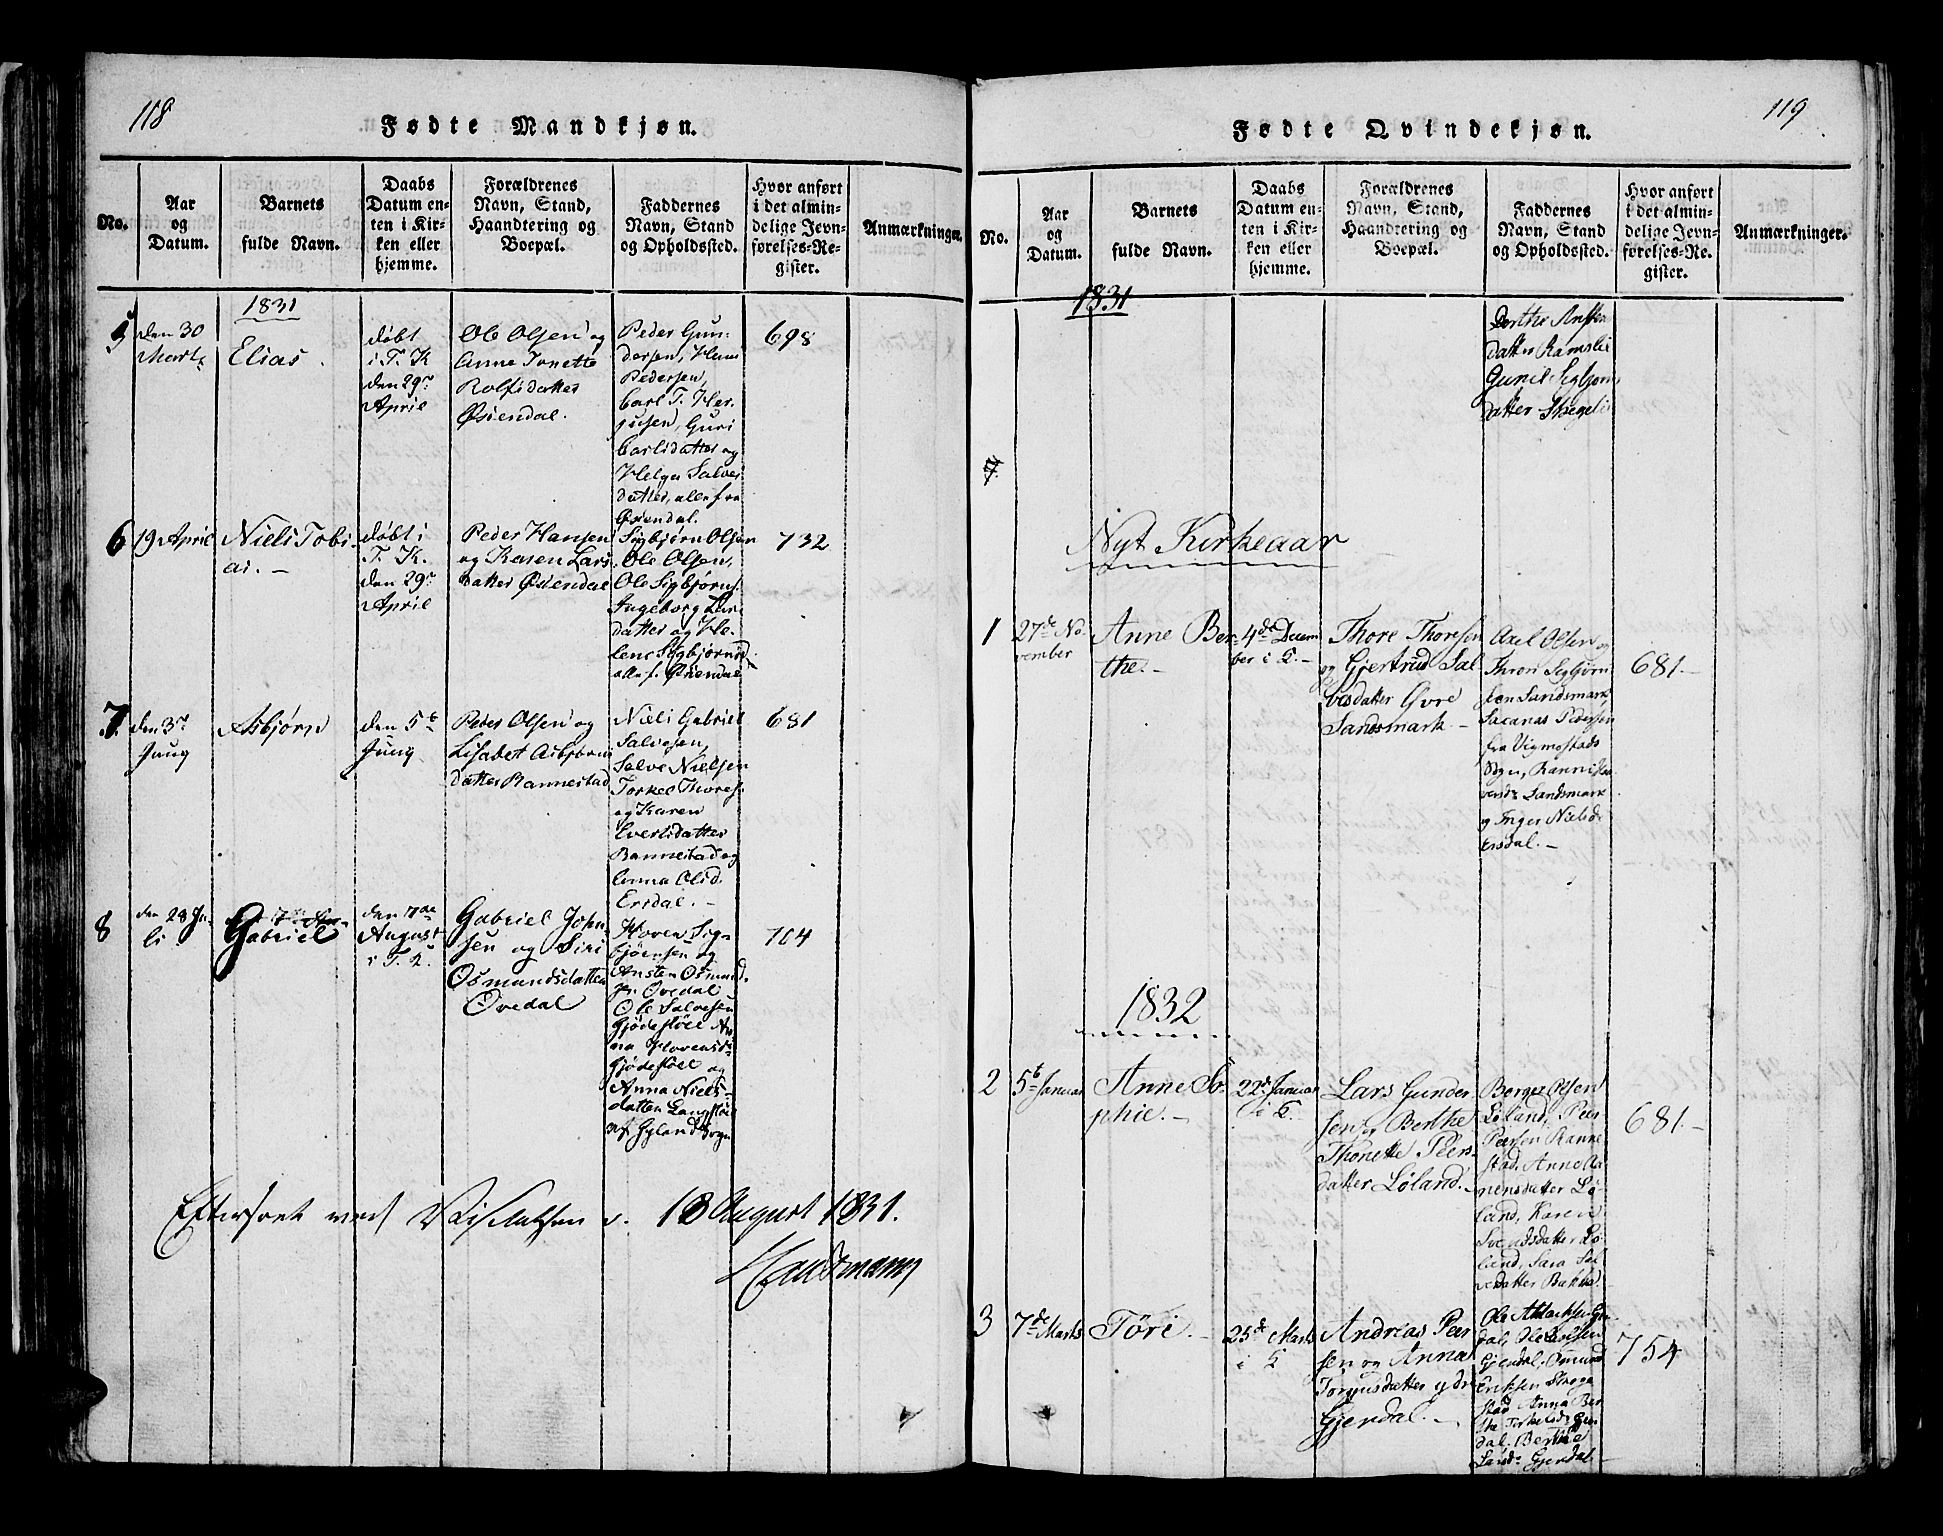 118
Fødte Mandkjøn.
No.
Aar
og
Datum.
Barnets
fulde Navn.
Daabs
Datum en-
ten i Kir-
ken eller
hjemme.
Forældrenes
Navn, Stand,
Haandtering og
Boepæl.
Faddernes
Navn, Stand
og Opholdssted.
Hvor anført
i det almin-
delige Jevn-
førelses-Re-
gister.
Anmærkninger.
1831
5
den 30
Marts
Elias.
døbt
i T. K
den 29de
April
Ole Olsen og
Anne Tonette
Rolfsdatter
Øsiendal.
Peder Gun-
dersen, Hans
Pedersen,
Carl T. Her-
jusen, Guri
Carlsdatter og
Helga Salves
datter, alle fra
Øsiendal.
698
6
19 April
Niels Tobi-
as. -
døbt i
T. K.
den 29de
April
Peder Hansen
og Karen Lars
datter Øsiendal
Sigbjørn Olsen
Ole Olsen,
Ole Sigbjørns.
Ingeborg Lars
datter og He-
lene Sigbjørnsd.
alle f. Øsiendal
732
7.
den 3de
Juny
Asbjørn
den 5te
Juny
Peder Olsen og
Lisabet Asbjørns
datter Rannestad
Niels Gabriel
Salvesen,
Salve Nielsen
Torkel Thores.
og Karen
Evertsdatter
Rannestad og
Anna Olsd.
Ersdal. -
681
8
den 28 Ju-
li
Gabriel
den 7de
August
i T. K.
Gabriel John-
sen og Siri
Osmundsdatter
Ovedal
Hoven Sig-
bjørnsen og
Ansten Osmund-
sen Ovedal
Ole Salvesen
Gjødestøel An-
na Hovensd.
Gjødestøel og
Anna Niels-
datter Langstøel
af Gyland Sogn
704
Efterseet ved 18 August 1831.
119
Fødte Qvindekjøn.
No.
Aar
og
Datum.
Barnets
fulde Navn.
Daabs
Datum en-
ten i Kir-
ken eller
hjemme.
Forældrenes
Navn, Stand,
Haandtering og
Boepæl.
Faddernes
Navn, Stand
og Opholdssted.
Hvor anført
i det almin-
delige Jevn-
førelses-Re-
gister.
Anmærkninger.
1831
Berthe Ansten
datter Ramslie
Gunil Sigbjørns
datter Skegeli
Nyt Kirkeaar
1
27de No-
vember
Anne Ber-
the. -
4de Decem
ber i K. -
Thore Thoresen
og Gjertrud Sal
vesdatter Øvre
Sandsmark -
Axel Olsen og
Thron Sigbjørn
sen Sandsmark,
Sacarias Pedersen
fra Vigmostads
Sogn, Ranni
Sandsmark
og Inger Nielsd.
Ersdal. -
681. -
1832
2
5te Januar
Anne So-
phie. -
22de Januar
i K.
Lars Gunder
sen og Berthe
Thonette Peers-
datter Løland. -
Berge Olsen
Løland, Peer
Peersen Ranne
stad, Anne Aa-
nensdatter Lø-
land, Karen
Svendsdatter Lø-
land, Sara Sal
vesdatter Bakka. -
681. -
3
7de Marts
Tøri. -
25de Marts
i K
Andreas Peer
sen og Anna
Torjusdatter ydre
Gjendal. -
Ole Gjen-
dal, Ole
Gjendal, Osmund
Eriksen Strøge
stad Anna Ber
the Torkelsd. Gjen
dal, Berthe
Gjendal -
754